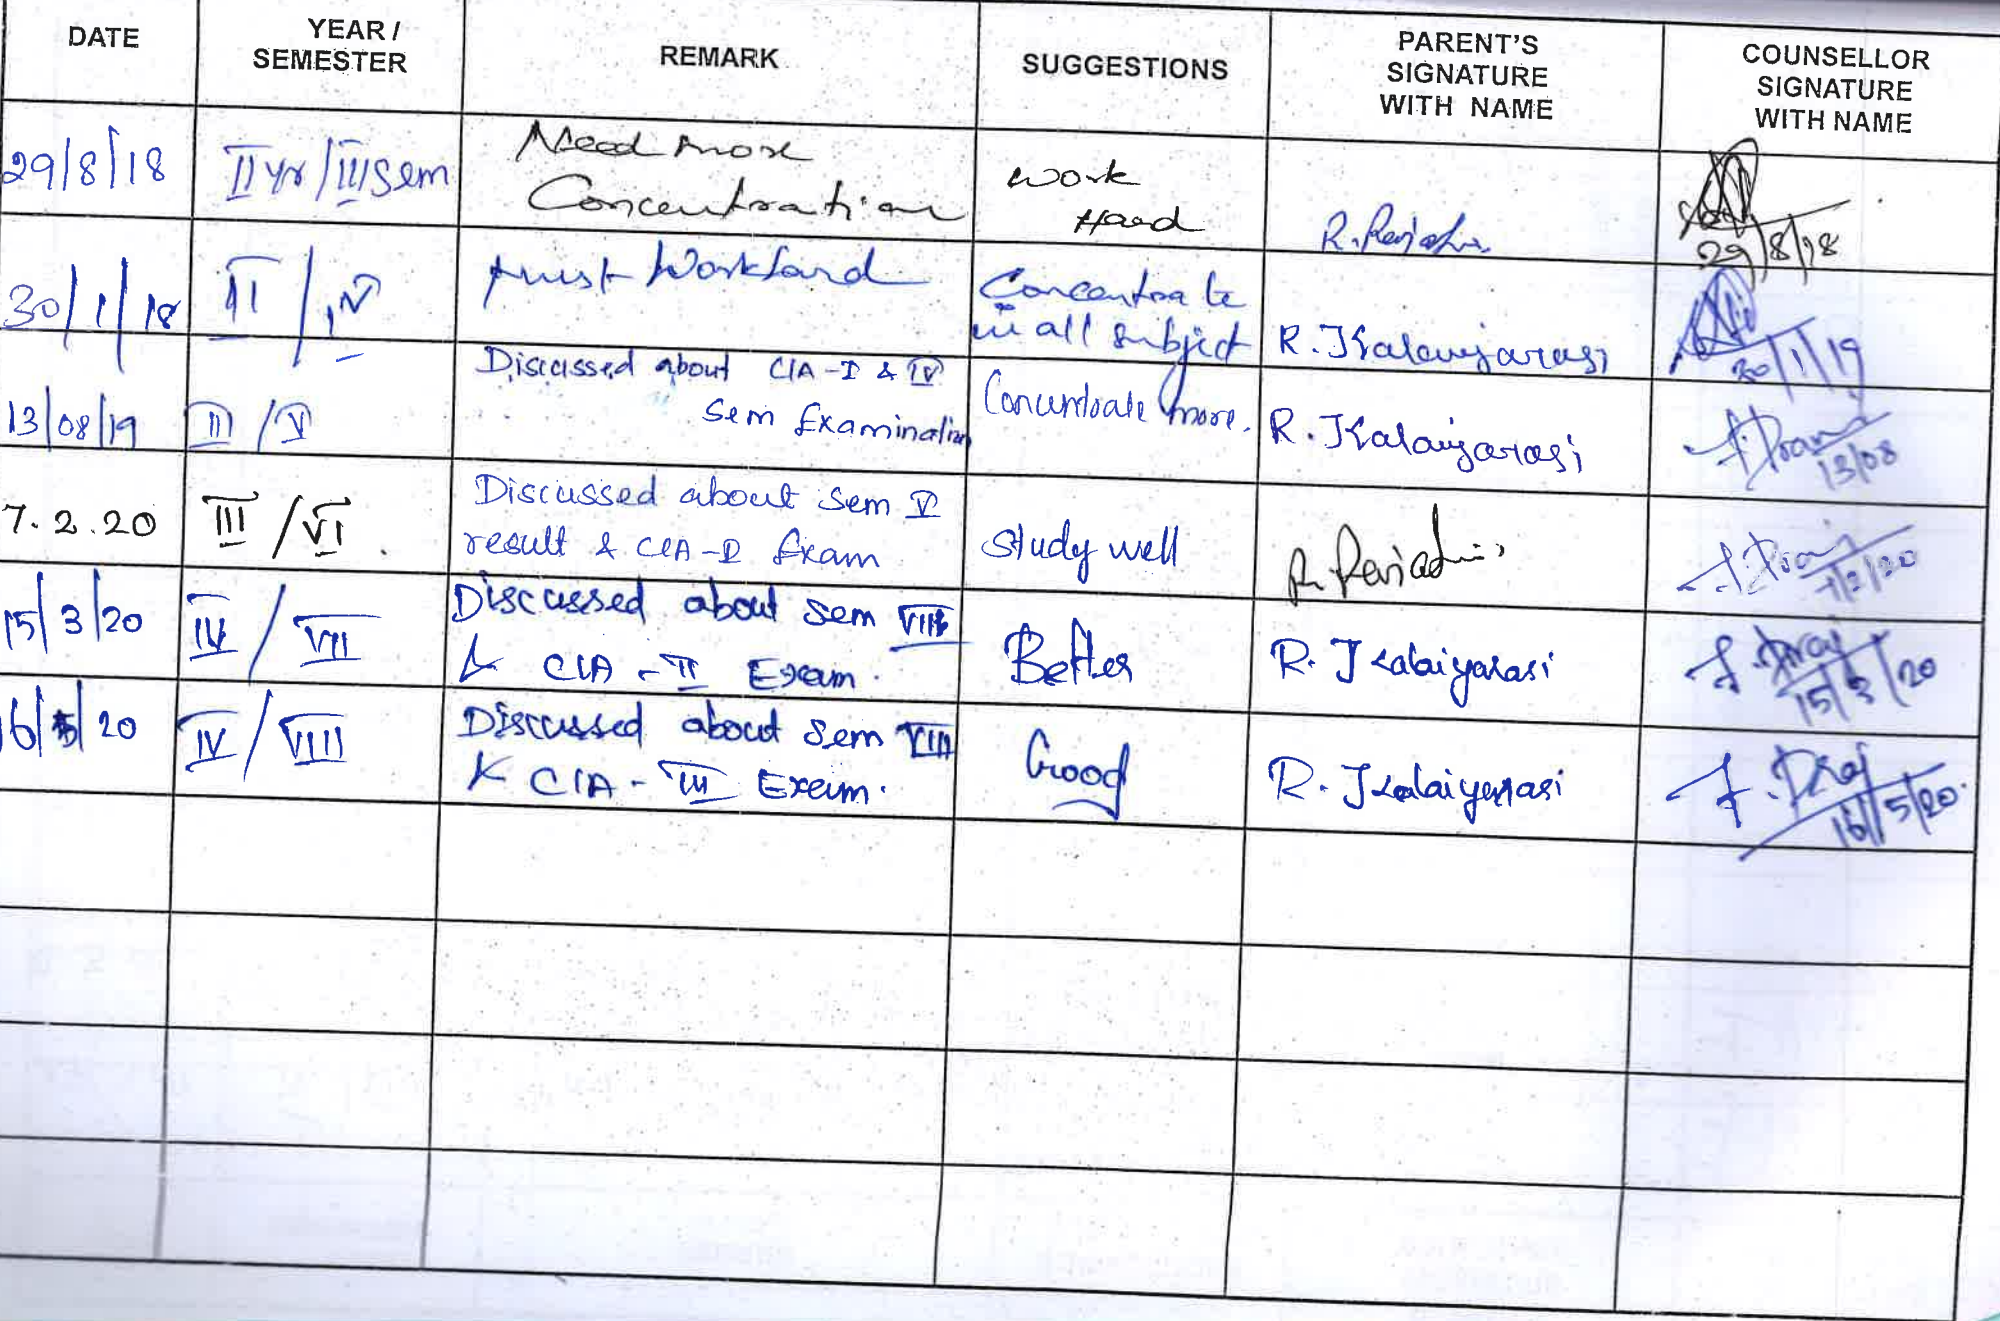 DATE
YEAR /
SEMESTER
REMARK
SUGGESTIONS
PARENT'S
SIGNATURE
WITH NAME
COUNSELLOR
SIGNATURE
WITH NAME
29/8/18
II yr / III Sem
Need more
Concentration
work
Hard
29/8/18
30/1/18
II / IV
must work hard
Concentrate
in all subject
R. Kalaiyarasi
30/1/19
13/08/19
III / V
Discussed about CIA-I & IV
Sem Examination
Concentrate more.
R. Kalaiyarasi
13/08
7.2.20
III / VI.
Discussed about Sem V
result & CIA-I Exam
Study well
7/2/20
15/3/20
IV / VII
Discussed about Sem VIII
& CIA - II Exam.
Better
R. Kalaiyarasi
15/3/20
16/5/20
IV / VIII
Discussed about Sem VIII
& CIA - III Exam.
Good
R. Kalaiyarasi
16/5/20.